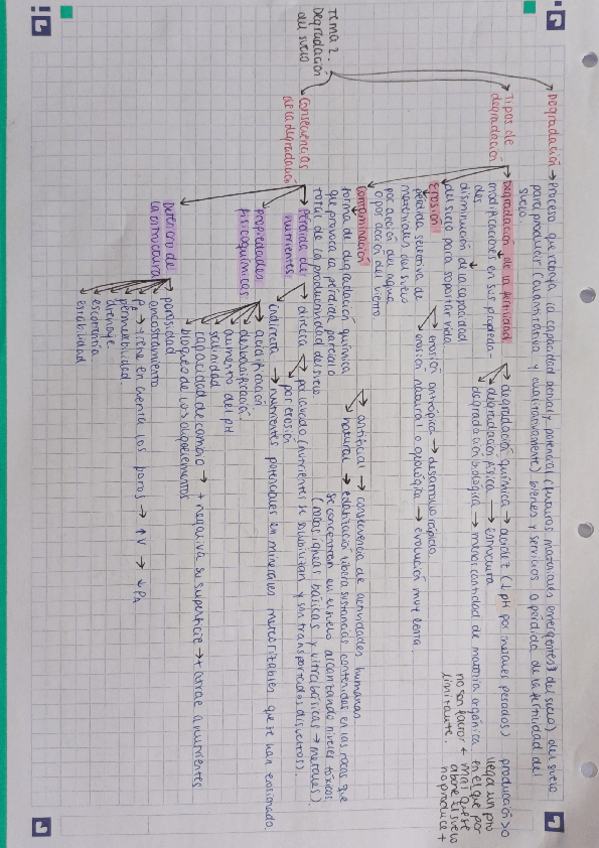 Tema 2.
Degradación
del suelo
Degradación → Proceso que rebaja la capacidad actual y potencial (futuros materiales emergentes) del suelo
para producir (cuantitativa y cualitativamente) bienes y servicios o pérdida de la fertilidad del
suelo.
Tipos de
degradación
Degradación de la fertilidad
modificaciones en sus propieda-
des
disminución de la capacidad
del suelo para soportar vida
degradación química → acidez (↓pH por metales pesados)
degradación física → estructura
degradación biológica → menor cantidad de materia orgánica
producción >0
llega un pto
en el que por
más que se
abone el suelo
no produce +
no son factor
limitante.
Erosión
pérdida selectiva de
materiales del suelo
por acción del agua
o por acción del viento
erosión antrópica → desarrollo rápido
erosión natural o geológica → evolución muy lenta.
Contaminación
forma de degradación química
que provoca la pérdida parcial o
total de la productividad del suelo
artificial → consecuencia de actividades humanas
natural → edafización libera sustancias contenidas en las rocas que
se concentran en el suelo alcanzando niveles tóxicos
(rocas ígneas básicas y ultrabásicas → metales).
Consecuencias
de la degradación
Pérdida de
nutrientes
directa
por lavado (nutrientes se solubilizan y son transportados disueltos).
por erosión
indirecta → nutrientes potenciales en minerales meteorizables que se han erosionado.
propiedades
fisicoquímicas
acidificación.
desbasificación.
aumento del pH
salinidad
capacidad de cambio → + negativa su superficie → + atrae a nutrientes
bloqueo de los oligoelementos
Deterioro de
la estructura
porosidad
encostramiento
PA → tiene en cuenta los poros → ↑V → ↓PA
permeabilidad.
drenaje
escorrentía
estabilidad